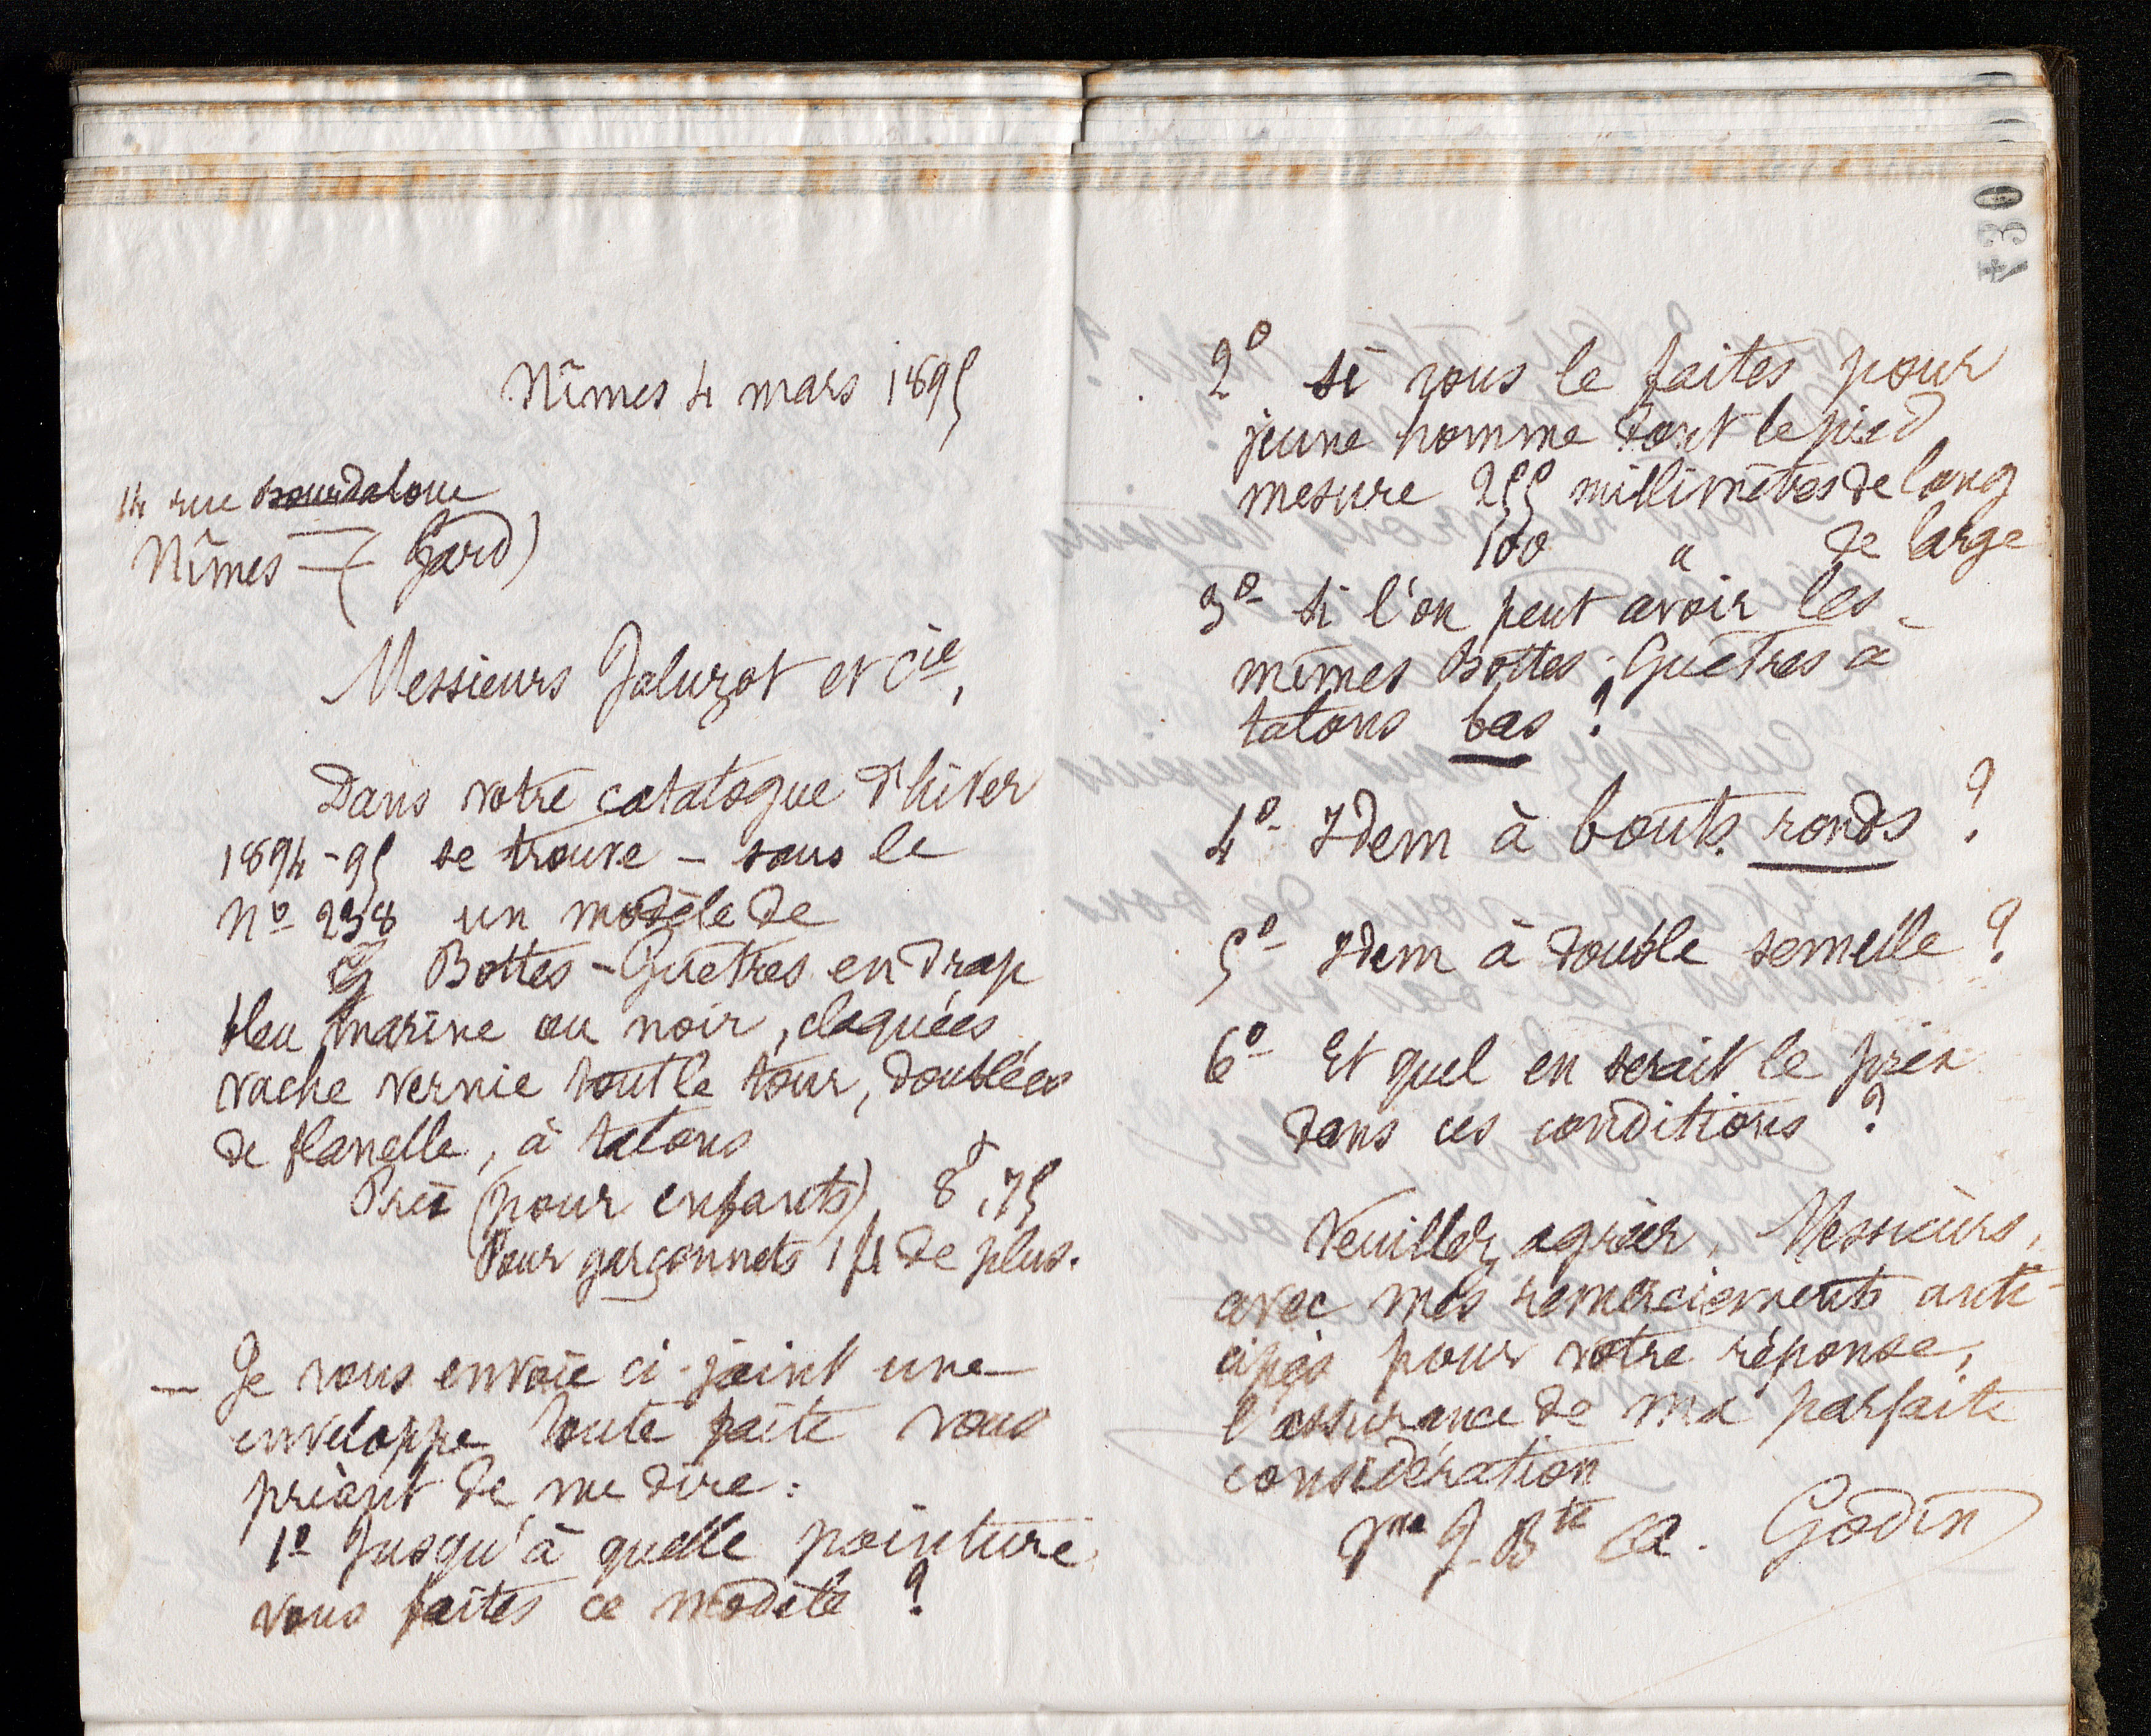 Nîmes 4 mars 1895
14 rue Bourdaloue
Nîmes — (Gard)
Messieurs Jaluzot et Cie,
Dans votre catalogue d'hiver
1894-95 se trouve — sous le
No 238 un modèle de
Bottes-Guêtres en drap
bleu marine ou noir, claquées
vache vernie tout le tour, doublées
de flanelle, à talons
Prix (pour enfants) 8f,75
Pour garçonnets 1f de plus.
— Je vous envoie ci-joint une
enveloppe toute faite vous
priant de me dire :
1o Jusqu'à quelle pointure
vous faites ce modèle ?
730
2o si vous le faites pour
jeune homme dont le pied
mesure 255 millimètres de long
100 " de large
3o Si l'on peut avoir les
mêmes Bottes-Guêtres à
talons bas ?
4o Idem à bouts ronds ?
5o Idem à double semelle ?
6o Et quel en serait le prix
dans ces conditions ?
Veuillez agréer, Messieurs,
avec mes remerciements anti-
cipés pour votre réponse,
l'assurance de ma parfaite
considération
J. Bte A. Godin